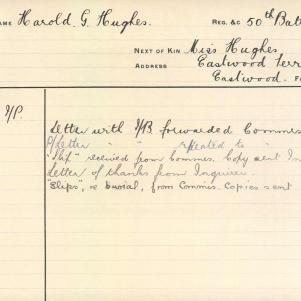 NAME Harold. G. Hughes. REG. &C 50th Bat
NEXT OF KIN Miss Hughes
ADDRESS Eastwood Terr
Eastwood. F
I/P.
Letter with I/B. forwarded Commis
P/Letter " " replied to "
"Slip" received from Commis. Copy sent In
Letter of thanks from Inquirer.
"Slips", re burial, from Commis. Copies sent